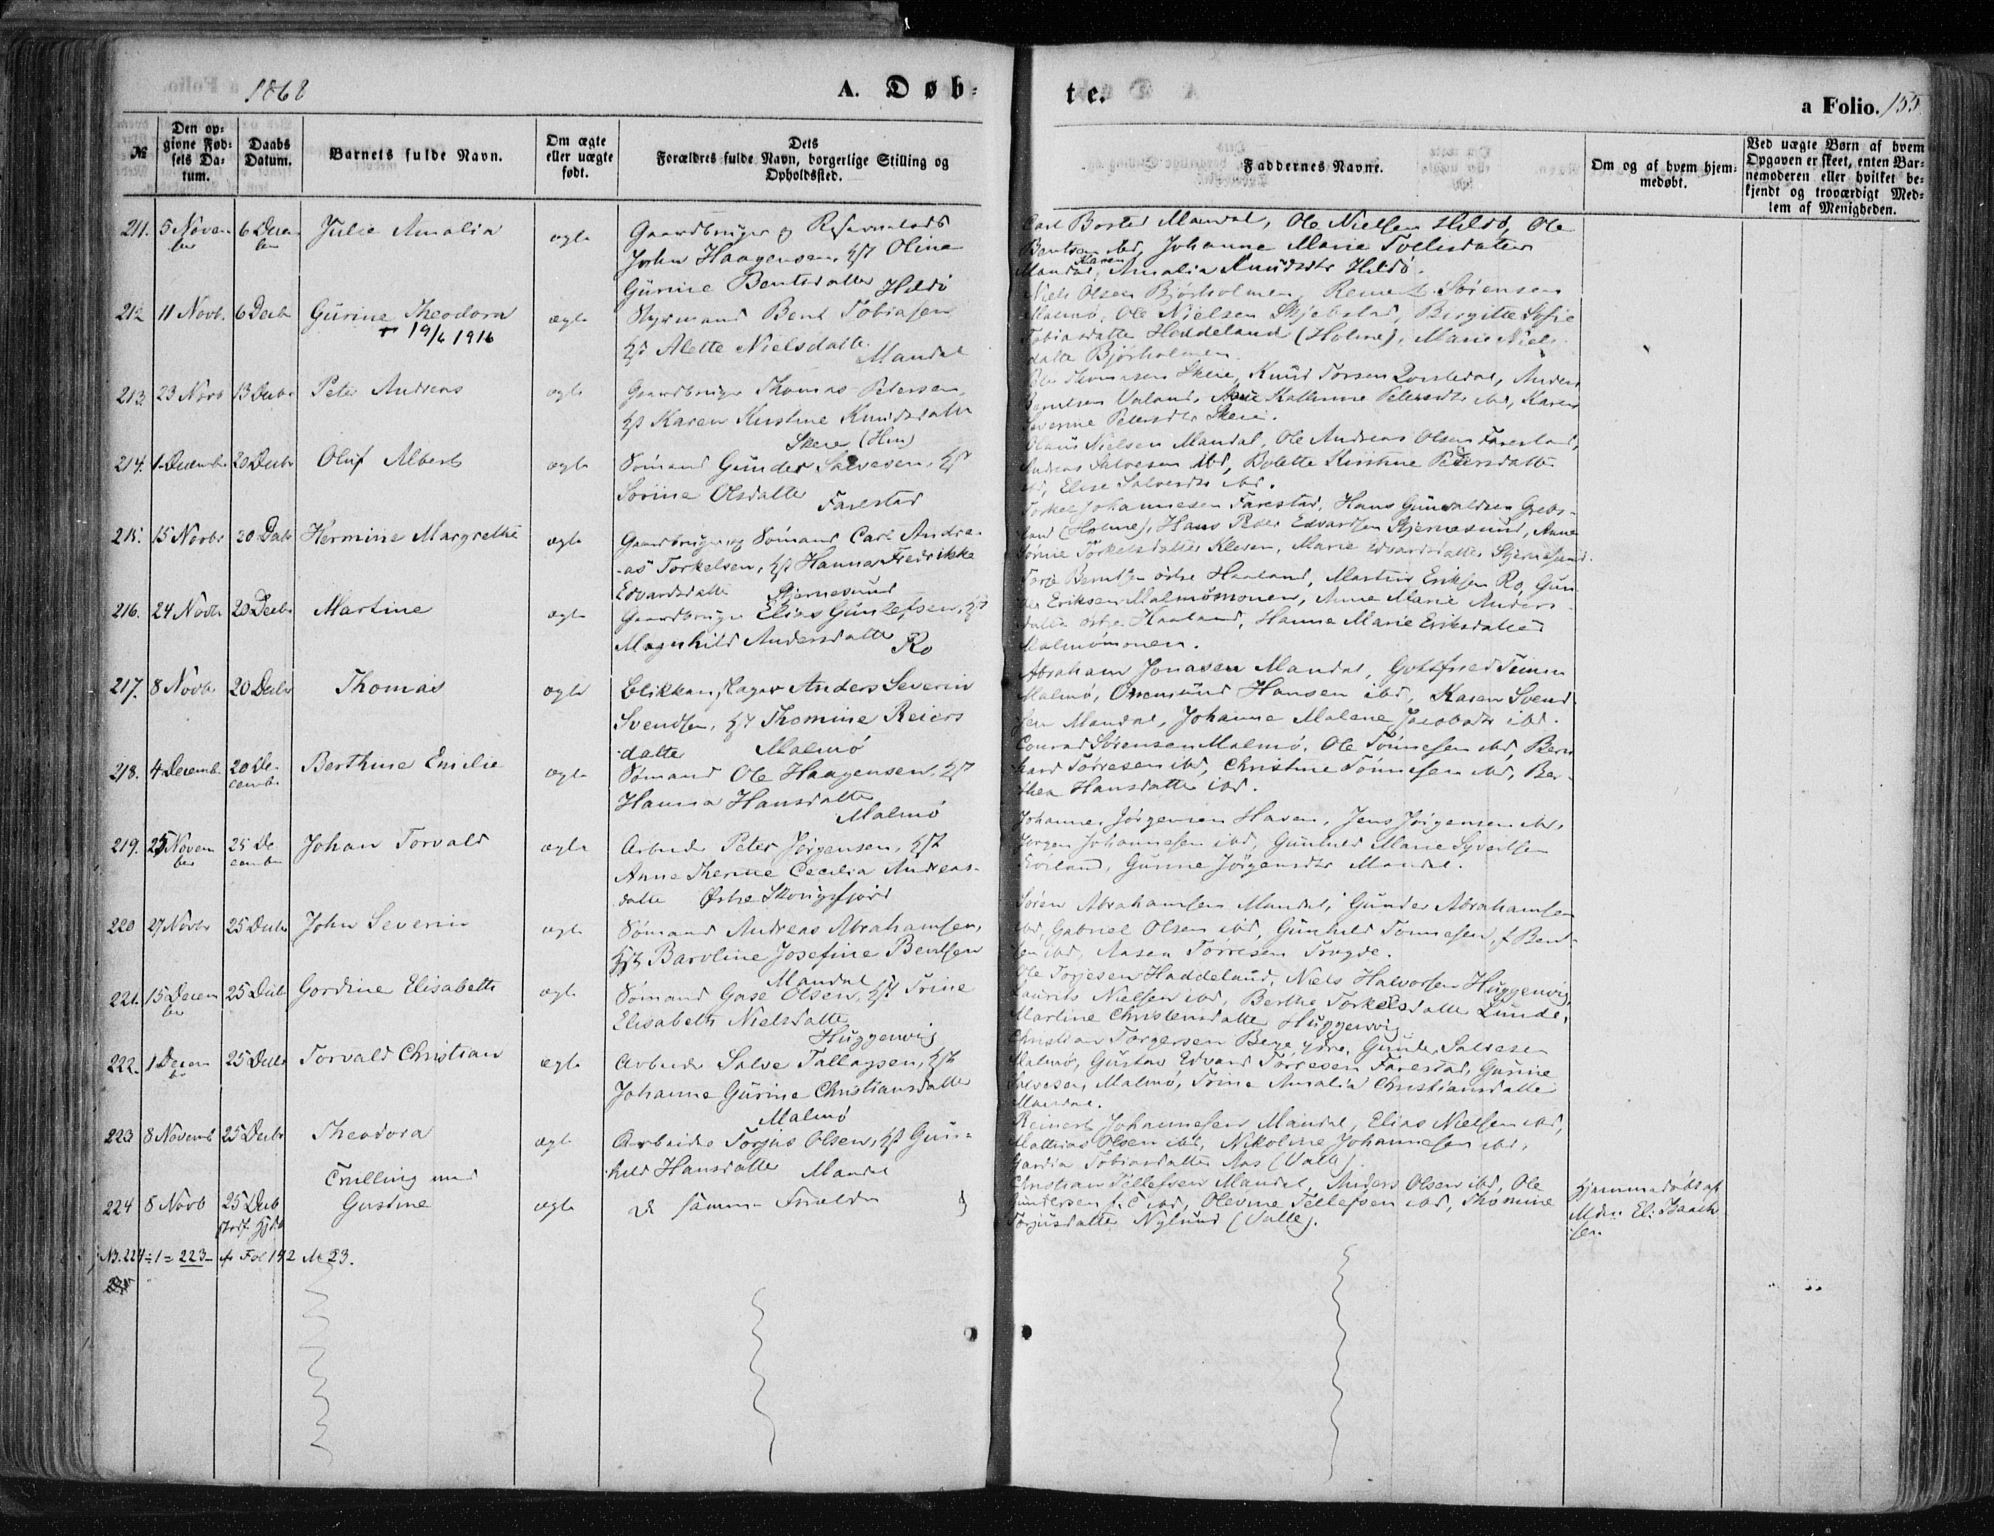 1868
A. Døb-
te.
a Folio. 155
№
Den op-
givne Fød-
sels Da-
tum.
Daabs
Datum.
Barnets fulde Navn.
Om ægte
eller uægte
født.
Dets
Forældres fulde Navn, borgerlige Stilling og
Opholdssted.
Faddernes Navne.
Om og af hvem hjem-
medøbt.
Ved uægte Børn af hvem
Opgaven er skeet, enten Bar-
nemoderen eller hvilket be-
kjendt og troværdigt Med-
lem af Menigheden.
211. 5 Novem 6 Decem Julie Amalia ægte Gaardbruger og
ber ber John Haagensen, Hst Oline
Gurine Bentsdatter Hildø
Mandal, Ole Nielsen Hildø, Ole
Bentsen ibd, Johanne Marie
Mandal, Karen Amalia Knudsdtr Hildø.
212 11 Novb. 6 Decbr Gurine Theodora ægte Styrmand Bent Tobiasen
+ 19/6 1916 Hst Alette Nielsdatter
Mandal
Niels Olsen Bjørholmen, Sørensen
Malmø, Ole Nielsen Skjebstad, Birgitte Sofie
Tobiasdatter Haddeland (Holme), Marie Niels
datter Bjørholmen.
213. 23 Novb 13 Decbr Peter Andreas ægte Gaardbruger Thomas Petersen,
Hst Karen Kirstine Knudsdatter
Skeie
Thomasen Skeie, Knud Torsen Anders
Valand, Kathrine Petersdtr ibd, Karen
Severine Petersdtr Skeie.
214. 1 Decembr 20 Decbr Oluf Albert ægte Sømand Gunder Salvesen, Hst
Sorine Olsdatter
Farestad
Olaus Nielsen Mandal, Ole Andreas Olsen Farestad,
Andreas Salvesen ibd, Bolette Kirstine Petersdatter
ibd, Elise Salvesdtr ibd.
215. 15 Novbr 20 Decbr Hermine Margrethe ægte Gaardbruger og Sømand Carl Andre-
-as Torkelsen, Hst Hanna Fredrikke
Edvardsdatter Stjernesund
Torkel Johannesen Farestad, Hans Gunvaldsen Grebs-
land (Holme), Hans Peter Edvardsen Stjernesund, Anne
Torkelsdatter Kleven, Marie Edvardsdatter Stjernesund.
216. 24 Novbr 20 Decbr Martine ægte Gaardbruger Elias Gunlefsen, Hst
Magnhild Andersdatter
Ro
Berntsen østre Haaland, Martin Eriksen Ro, Gun-
der Eriksen Malmømonen, Anne Marie Anders-
datter østre Haaland, Hanne Marie Eriksdatter
Malmømonen.
217. 8 Novbr 20 Decbr Thomas ægte Blikkenslager Anders Severin
Svendsen, Hst Thomine Reiers
datter Malmø
Abraham Jonasen Mandal, Gottfried
Malmø, Hansen ibd, Karen Svend-
sen Mandal, Johanne Malene Jacobsdtr ibd.
218. 4 Decemb. 20 De- Berthine Emilie ægte Sømand Ole Haagensen, Hst
cember Hanna Hansdatter
Malmø
Conrad Sørensen Malmø, Ole Tønnesen ibd, Bern-
hard Tørresen ibd, Christine Tønnesen ibd, Ber-
thea Hansdatter ibd.
219. 25 Novem 25 De Johan Torvald ægte Arbeider Peter Jørgensen, Hst
ber cember Anne Therine Cecilia Andreas-
datter Østre Skougsfjord
Johannes Jørgensen Haven, Jens Jørgensen ibd,
Jørgen Johannesen ibd, Gunhild Marie Syvertsen
Gurine Jørgensdtr Mandal.
220 27 Novbr 25 Decbr John Severin ægte Sømand Andreas Abrahamsen,
Hst Baroline Josefine Bentsen
Mandal
Søren Abrahamsen Mandal, Gunder Abrahamsen
ibd, Gabriel Olsen ibd, Gunhild Tønnesen, f Bent-
sen ibd, Aasen Tørresen
221. 15 Decem 25 Decbr Gordine Elisabeth ægte Sømand Gase Olsen, Hst Trine
ber Elisabeth Nielsdatter
Huggenvig
Ole Torjesen Haddeland, Niels Halvorsen Huggenvig,
Laurits Nielsen ibd, Berthe Torkelsdatter Lunde,
Martine Christensdatter Huggenvig
222. 1 Decem 25 Decbr Torvald Christian ægte Arbeider Salve Tallagsen, Hst
ber Johanne Gurine Christiansdatter
Malmø
Christian Torgersen Gunder Salvesen
Malmø, Gustav Edvard Tørresen Farestad, Gurine
Salvesen Malmø, Trine Amalia Christiansdatter
Mandal.
223 8 Novemb 25 Decbr Theodora ægte Arbeider Torjus Olsen, Hst Gun-
hild Hansdatter Mandal
Reinert Johannesen Mandal, Elias Nielsen ibd,
Mathias Olsen ibd, Nikoline Johannesen ibd,
Tobiasdatter Aas (Valle).
Tvilling med
224 8 Novb 25 Decb Gustine ægte De samme Forældre
Christian Tellefsen Mandal, Anders Olsen ibd, Ole
Gundersen ibd, Olevine Tellefsen ibd, Thomine
Torjusdatter Nylund (Valle).
Hjemmedøbt af
El: Baack-
sen.
NB. 224 ÷ 1 = 223 – fr Fol 142 № 23.